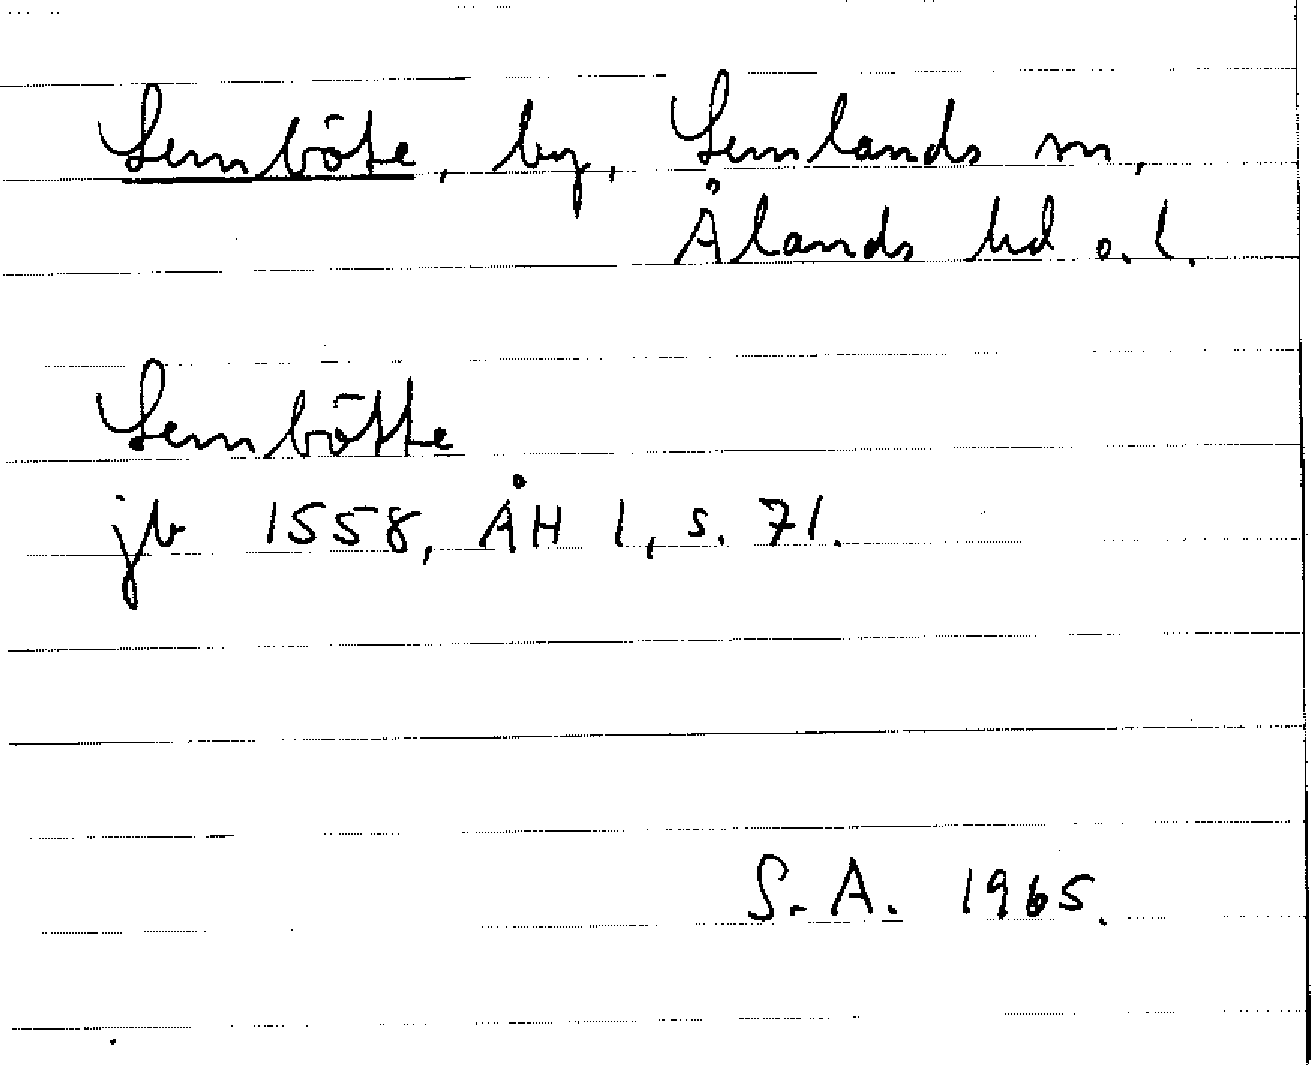 Lemböte, by, Lemlands sn,
Ålands hd o. l.
Lembötte
jb 1558, ÅH 1, s. 71.
S. A. 1965.